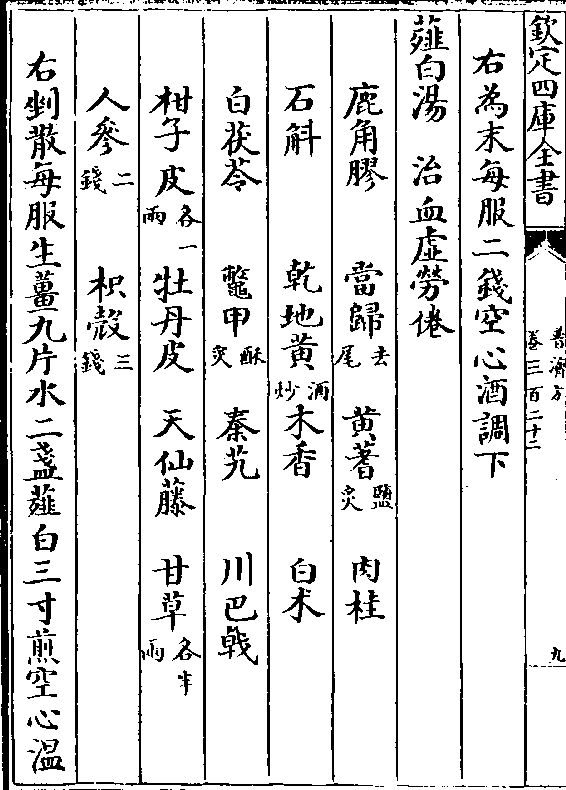 欽定四庫全書
普濟方
卷三百二十二
九
右為末每服二錢空心酒調下
薤白湯 治血虛勞倦
鹿角膠 當歸去尾 黄蓍鹽炙 肉桂
石斛 乾地黄酒炒 木香 白术
白茯苓 鼈甲酥炙 秦艽 川巴戟
柑子皮各一兩 牡丹皮 天仙藤 甘草各半兩
人參二錢 枳殼三錢
右剉散每服生薑九片水二盞薤白三寸煎空心溫